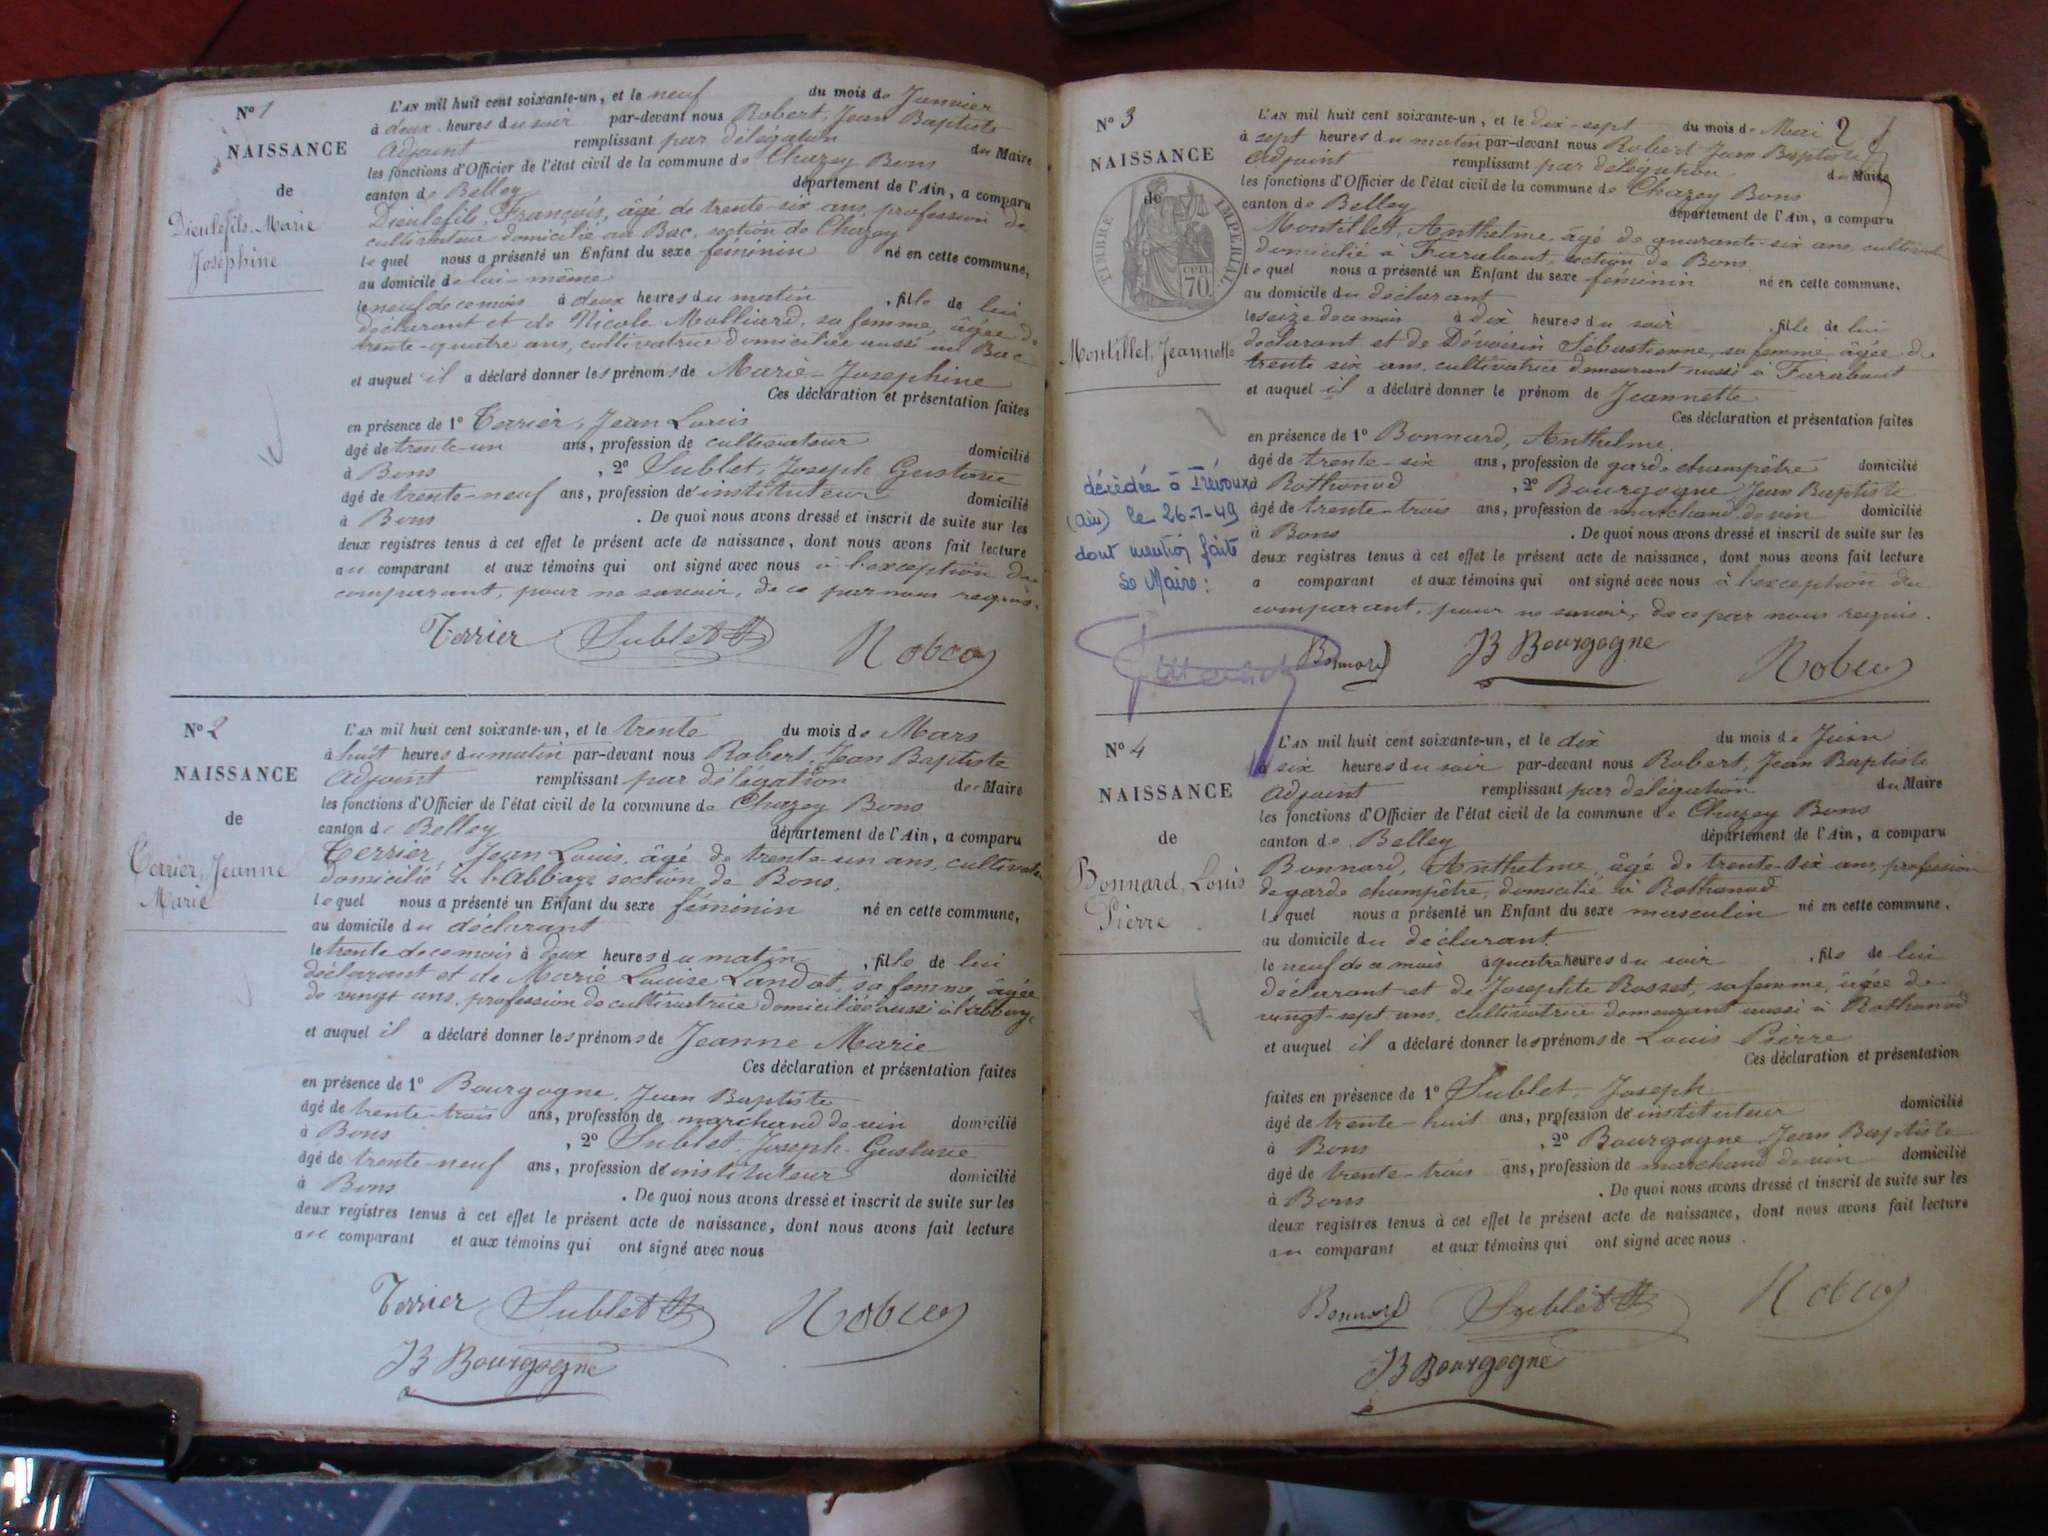 N° 1
NAISSANCE
de
Dieulefils, Marie
Joséphine
L'AN mil huit cent soixante-un, et le neuf du mois de Janvier
à deux heures du soir par-devant nous Robert, Jean Baptiste
Adjoint remplissant par délégation du Maire
les fonctions d'Officier de l'état civil de la commune de Chazey Bons
canton de Belley département de l'Ain, a comparu
Dieulefils, François, âgé de trente-six ans, profession de
cultivateur domicilié au Bac, section de Chazey
lequel nous a présenté un Enfant du sexe féminin né en cette commune,
au domicile de lui-même
le neuf de ce mois à deux heures du matin, fille de lui
déclarant et de Nicole Molliard, sa femme, âgée de
trente-quatre ans, cultivatrice domiciliée aussi au Bac
et auquel il a déclaré donner les prénoms de Marie-Josephine
Ces déclaration et présentation faites
en présence de 1° Terrier, Jean Louis
âgé de trente-un ans, profession de cultivateur domicilié
à Bons, 2° Sublet, Joseph Gustave
âgé de trente-neuf ans, profession de instituteur domicilié
à Bons. De quoi nous avons dressé et inscrit de suite sur les
deux registres tenus à cet effet le présent acte de naissance, dont nous avons fait lecture
au comparant et aux témoins qui ont signé avec nous à l'exception du
comparant, pour ne savoir, de ce par nous requis.
Terrier Sublet Robert
N° 2
NAISSANCE
de
Terrier, Jeanne
Marie
L'AN mil huit cent soixante-un, et le trente du mois de Mars
à huit heures du matin par-devant nous Robert, Jean Baptiste
Adjoint remplissant par délégation du Maire
les fonctions d'Officier de l'état civil de la commune de Chazey Bons
canton de Belley département de l'Ain, a comparu
Terrier, Jean Louis, âgé de trente-un ans, cultivateur
domicilié à l'Abbaye section de Bons,
lequel nous a présenté un Enfant du sexe féminin né en cette commune,
au domicile du déclarant
le trente de ce mois à deux heures du matin, fille de lui
déclarant et de Marie Louise Landot, sa femme, âgée
de vingt ans, profession de cultivatrice domiciliée aussi à l'abbaye
et auquel il a déclaré donner les prénoms de Jeanne Marie
Ces déclaration et présentation faites
en présence de 1° Bourgogne, Jean Baptiste
âgé de trente-trois ans, profession de marchand de vin domicilié
à Bons, 2° Sublet, Joseph-Gustave
âgé de trente-neuf ans, profession de instituteur domicilié
à Bons. De quoi nous avons dressé et inscrit de suite sur les
deux registres tenus à cet effet le présent acte de naissance, dont nous avons fait lecture
au comparant et aux témoins qui ont signé avec nous
Terrier Sublet Robert
JB Bourgogne
2
N° 3
NAISSANCE
de
TIMBRE IMPERIAL
CEN
70
Montillet, Jeannette
décédée à Trévoux
(Ain) le 26-1-49
dont mention faite
Le Maire:
L'AN mil huit cent soixante-un, et le dix-sept du mois de Mai
à sept heures du matin par-devant nous Robert Jean Baptiste
Adjoint remplissant par délégation du Maire
les fonctions d'Officier de l'état civil de la commune de Chazey Bons
canton de Belley département de l'Ain, a comparu
Montillet, Anthelme, âgé de quarante-six ans, cultivat
domicilié à Farabout, section de Bons.
lequel nous a présenté un Enfant du sexe féminin né en cette commune,
au domicile du déclarant
le seize de ce mois à dix heures du soir, fille de lui
déclarant et de Dévoisin Sébastienne, sa femme, âgée de
trente six ans, cultivatrice demeurant aussi à Farabout
et auquel il a déclaré donner le prénom de Jeannette
Ces déclaration et présentation faites
en présence de 1° Bonnard, Anthelme.
âgé de trente-six ans, profession de garde champêtre domicilié
à Rothonod, 2° Bourgogne Jean Baptiste
âgé de trente-trois ans, profession de marchand de vin domicilié
à Bons. De quoi nous avons dressé et inscrit de suite sur les
deux registres tenus à cet effet le présent acte de naissance, dont nous avons fait lecture
a comparant et aux témoins qui ont signé avec nous à l'exception du
comparant, pour ne savoir, de ce par nous requis.
Bonnard JB Bourgogne Robert
N° 4
NAISSANCE
de
Bonnard, Louis
Pierre
L'AN mil huit cent soixante-un, et le dix du mois de Juin
à six heures du soir par-devant nous Robert, Jean Baptiste
Adjoint remplissant par délégation du Maire
les fonctions d'Officier de l'état civil de la commune de Chazey Bons
canton de Belley département de l'Ain, a comparu
Bonnard, Anthelme, âgé de trente-six ans, profession
de garde champêtre, domicilié à Rothonod
lequel nous a présenté un Enfant du sexe masculin né en cette commune,
au domicile du déclarant.
le neuf de ce mois à quatre heures du soir, fils de lui
déclarant et de Josephte Rosset, sa femme, âgée de
vingt-sept ans, cultivatrice demeurant aussi à Rothonod
et auquel il a déclaré donner les prénoms de Louis Pierre
Ces déclaration et présentation
faites en présence de 1° Sublet, Joseph
âgé de trente-huit ans, profession de instituteur domicilié
à Bons, 2° Bourgogne Jean Baptiste
âgé de trente-trois ans, profession de marchand de vin domicilié
à Bons. De quoi nous avons dressé et inscrit de suite sur les
deux registres tenus à cet effet le présent acte de naissance, dont nous avons fait lecture
au comparant et aux témoins qui ont signé avec nous.
Bonnard Sublet Robert
JB Bourgogne